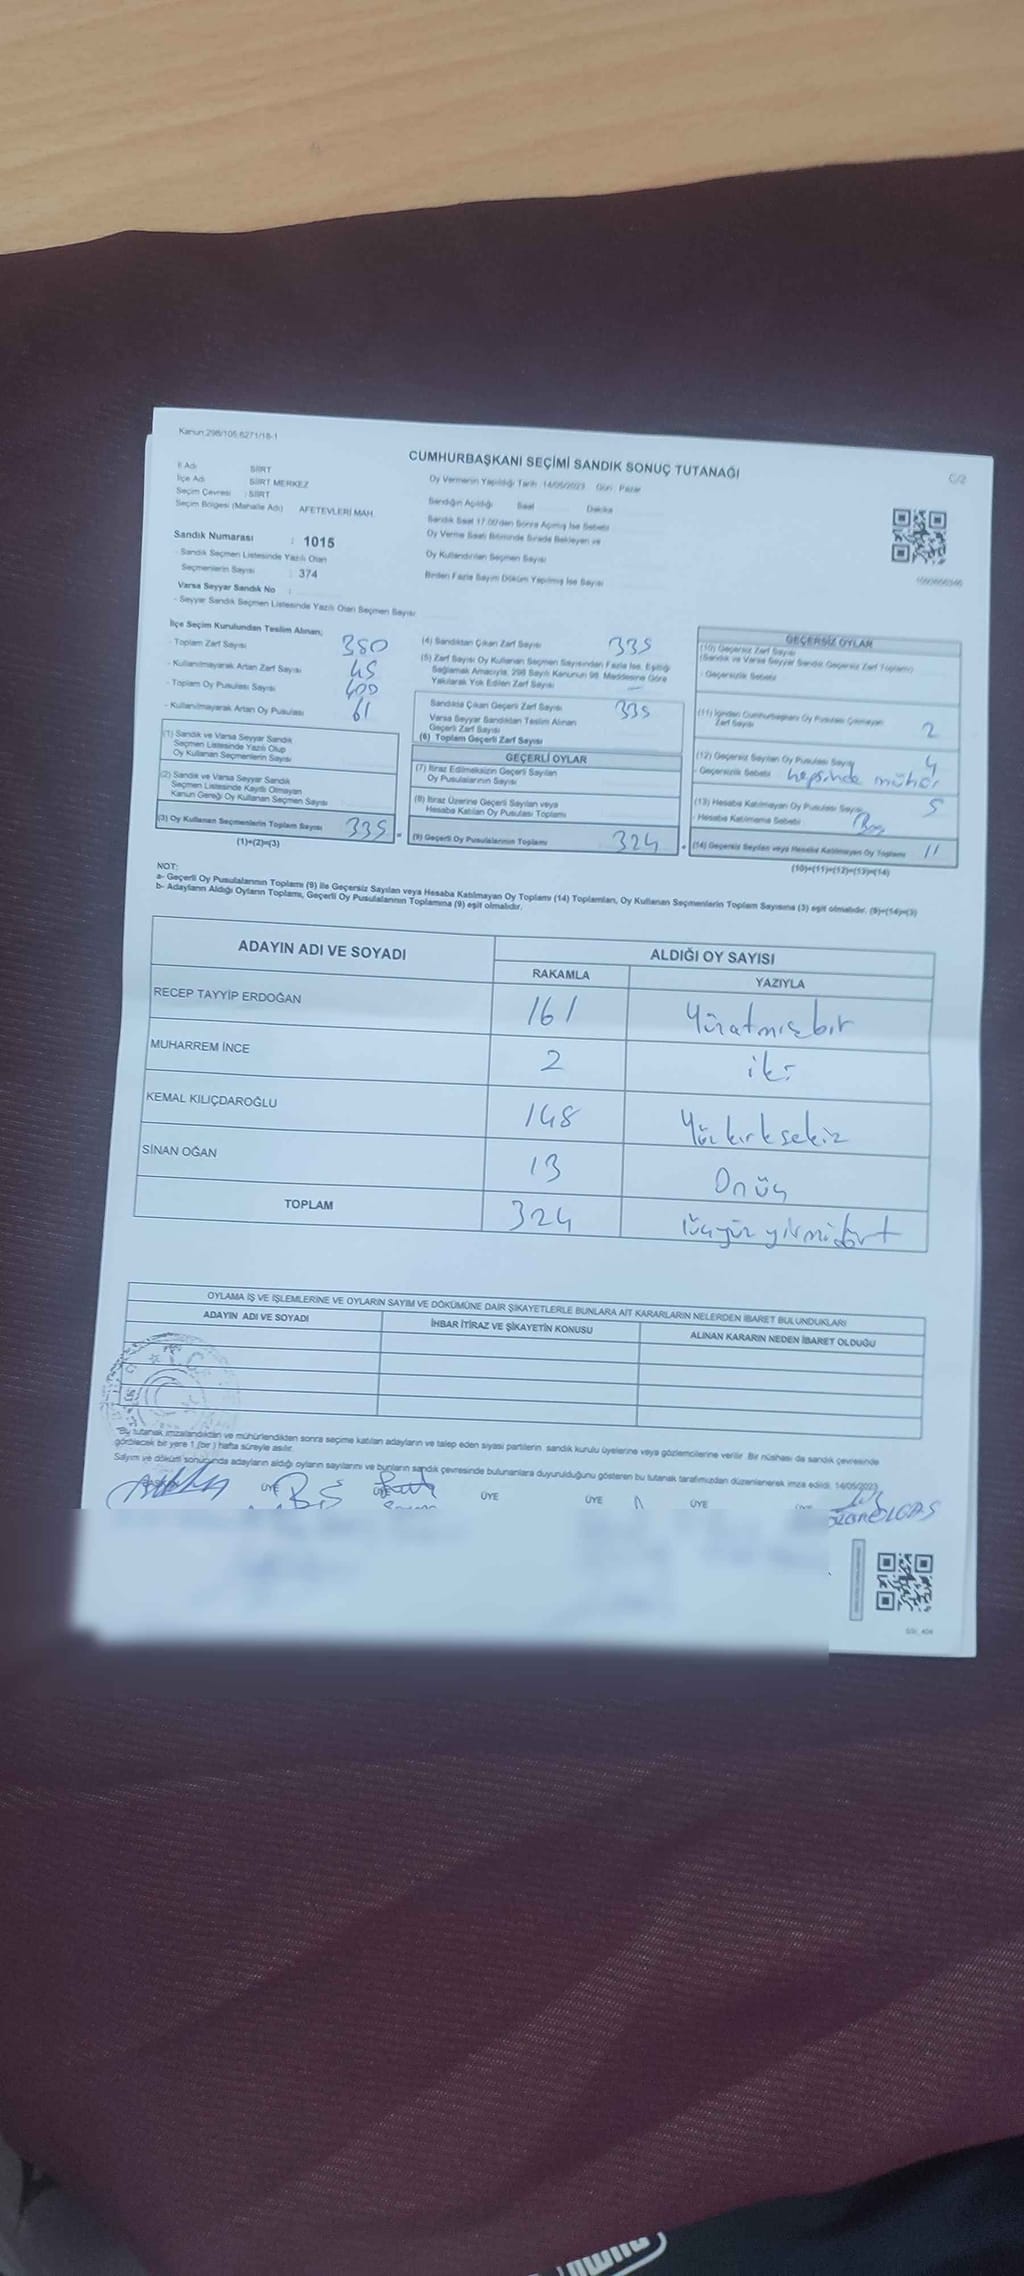 Kanun:298/105,6271/18-1
CUMHURBAŞKANI SEÇİMİ SANDIK SONUÇ TUTANAĞI
C/2
İl Adı SİİRT
İlçe Adı SİİRT MERKEZ
Seçim Çevresi : SİİRT
Seçim Bölgesi (Mahalle Adı) AFETEVLERİ MAH.
Oy Vermenin Yapıldığı Tarih :14/05/2023 Gün : Pazar
Sandığın Açıldığı Saat Dakika
Sandık Saat 17:00'den Sonra Açılmış İse Sebebi
Oy Verme Saati Bitiminde Sırada Bekleyen ve
Oy Kullandırılan Seçmen Sayısı
Birden Fazla Sayım Döküm Yapılmış İse Sayısı
Sandık Numarası : 1015
- Sandık Seçmen Listesinde Yazılı Olan
Seçmenlerin Sayısı : 374
Varsa Seyyar Sandık No :
- Seyyar Sandık Seçmen Listesinde Yazılı Olan Seçmen Sayısı
İlçe Seçim Kurulundan Teslim Alınan;
- Toplam Zarf Sayısı 380
- Kullanılmayarak Artan Zarf Sayısı 45
- Toplam Oy Pusulası Sayısı 400
- Kullanılmayarak Artan Oy Pusulası 61
(1) Sandık ve Varsa Seyyar Sandık
Seçmen Listesinde Yazılı Olup
Oy Kullanan Seçmenlerin Sayısı
(2) Sandık ve Varsa Seyyar Sandık
Seçmen Listesinde Kayıtlı Olmayan
Kanun Gereği Oy Kullanan Seçmen Sayısı
(3) Oy Kullanan Seçmenlerin Toplam Sayısı 335
(1)+(2)=(3)
(4) Sandıktan Çıkan Zarf Sayısı 335
(5) Zarf Sayısı Oy Kullanan Seçmen Sayısından Fazla İse, Eşitliği
Sağlamak Amacıyla, 298 Sayılı Kanunun 98. Maddesine Göre
Yakılarak Yok Edilen Zarf Sayısı –
Sandıkta Çıkan Geçerli Zarf Sayısı 335
Varsa Seyyar Sandıktan Teslim Alınan
Geçerli Zarf Sayısı
(6) Toplam Geçerli Zarf Sayısı
GEÇERLİ OYLAR
(7) İtiraz Edilmeksizin Geçerli Sayılan
Oy Pusulalarının Sayısı
(8) İtiraz Üzerine Geçerli Sayılan veya
Hesaba Katılan Oy Pusulası Toplamı
(9) Geçerli Oy Pusulalarının Toplamı 324
GEÇERSİZ OYLAR
(10) Geçersiz Zarf Sayısı
(Sandık ve Varsa Seyyar Sandık Geçersiz Zarf Toplamı)
- Geçersizlik Sebebi
(11) İçinden Cumhurbaşkanı Oy Pusulası Çıkmayan
Zarf Sayısı 2
(12) Geçersiz Sayılan Oy Pusulası Sayısı 4
- Geçersizlik Sebebi hepsinde mühür
(13) Hesaba Katılmayan Oy Pusulası Sayısı 5
- Hesaba Katılmama Sebebi Boş
(14) Geçersiz Sayılan veya Hesaba Katılmayan Oy Toplamı 11
(10)+(11)+(12)+(13)=(14)
NOT:
a- Geçerli Oy Pusulalarının Toplamı (9) ile Geçersiz Sayılan veya Hesaba Katılmayan Oy Toplamı (14) Toplamları, Oy Kullanan Seçmenlerin Toplam Sayısına (3) eşit olmalıdır. (9)+(14)=(3)
b- Adayların Aldığı Oyların Toplamı, Geçerli Oy Pusulalarının Toplamına (9) eşit olmalıdır.
ADAYIN ADI VE SOYADI ALDIĞI OY SAYISI
RAKAMLA YAZIYLA
RECEP TAYYİP ERDOĞAN 161 Yüzatmışbir
MUHARREM İNCE 2 iki
KEMAL KILIÇDAROĞLU 148 Yüzkırksekiz
SİNAN OĞAN 13 Onüç
TOPLAM 324 üçyüzyirmidört
OYLAMA İŞ VE İŞLEMLERİNE VE OYLARIN SAYIM VE DÖKÜMÜNE DAİR ŞİKAYETLERLE BUNLARA AİT KARARLARIN NELERDEN İBARET BULUNDUKLARI
ADAYIN ADI VE SOYADI İHBAR İTİRAZ VE ŞİKAYETİN KONUSU ALINAN KARARIN NEDEN İBARET OLDUĞU
"Bu tutanak imzalandıktan ve mühürlendikten sonra seçime katılan adayların ve talep eden siyasi partilerin sandık kurulu üyelerine veya gözlemcilerine verilir. Bir nüshası da sandık çevresinde
görülecek bir yere 1 (bir) hafta süreyle asılır.
Sayım ve dökümü sonucunda adayların aldığı oyların sayılarını ve bunların sandık çevresinde bulunanlara duyurulduğunu gösteren bu tutanak tarafımızdan düzenlenerek imza edildi. 14/05/2023
ÜYE ÜYE ÜYE ÜYE ÜYE